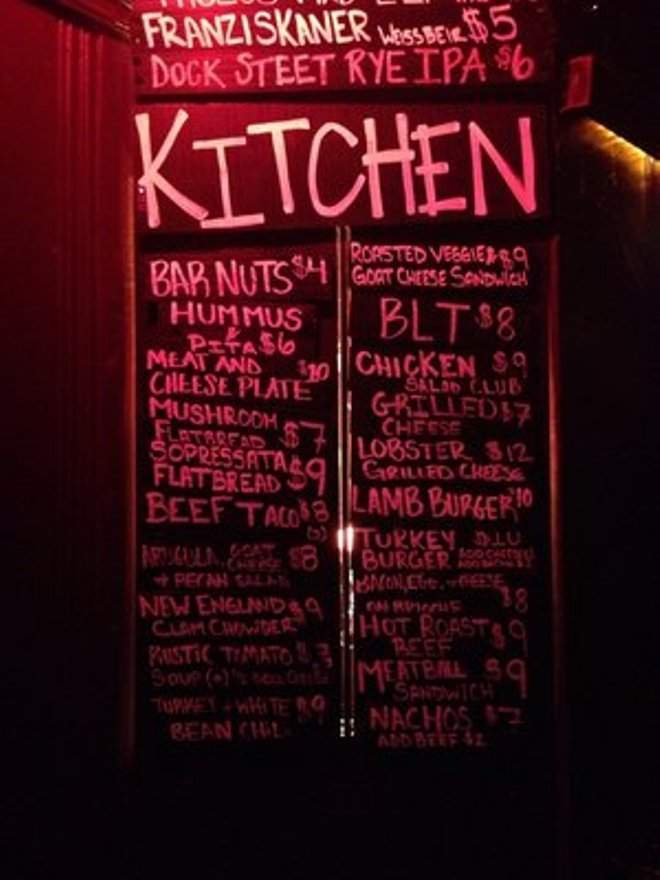 FRANZISKANER WEISSBEIR $5
DOCK STEET RYE IPA $6
KITCHEN
BAR NUTS $4
HUMMUS
&
PITA $6
MEAT AND $10
CHEESE PLATE
MUSHROOM
FLATBREAD $7
SOPRESSATA
FLATBREAD $9
BEEF TACO $8
(3)
ARUGULA, GOAT
CHEESE $8
+ PECAN SALAD
NEW ENGLAND $9
CLAM CHOWDER
RUSTIC TOMATO
SOUP
TURKEY + WHITE $9
BEAN CHILI
ROASTED VEGGIE & $9
GOAT CHEESE SANDWICH
BLT $8
CHICKEN $9
SALAD CLUB
GRILLED $7
CHEESE
LOBSTER $12
GRILLED CHEESE
LAMB BURGER $10
TURKEY $10
BURGER ADD CHEESE
ADD BACON
BACON, EGG, + CHEESE
ON BRIOCHE $8
HOT ROAST $9
BEEF
MEATBALL $9
SANDWICH
NACHOS $7
ADD BEEF $2